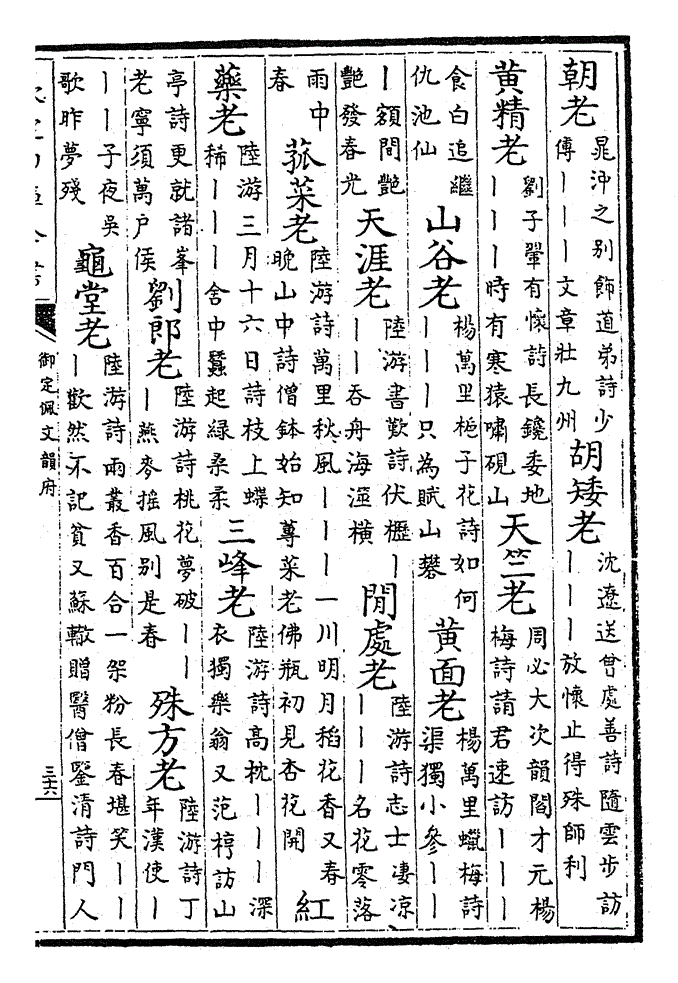 朝老
晁沖之别飾道弟詩少
傳丨丨丨文章壯九州
胡矮老
沈遼送曾處善詩隨雲步訪
丨丨丨放懷止得殊師利
黄精老
劉子翬有懷詩長鑱委地
丨丨丨時有寒猿嘯硯山
天竺老
周必大次韻閻才元楊
梅詩請君速訪丨丨丨
食白追繼
仇池仙
山谷老
楊萬里梔子花詩如何
丨丨丨只為賦山礬
黄面老
楊萬里蠟梅詩
渠獨小參丨丨
丨額間艶
艶發春光
天涯老
陸游書歎詩伏櫪丨
丨丨吞舟海澨横
閒處老
陸游詩志士凄凉
丨丨丨名花零落
雨中
春
菰菜老
陸游詩萬里秋風丨丨丨一川明月稻花香又春
晚山中詩僧鉢始知蓴菜老佛瓶初見杏花開
紅
藥老
陸游三月十六日詩枝上蝶
稀丨丨丨舍中蠶起緑桑柔
三峰老
陸游詩高枕丨丨丨深
衣獨樂翁又范梈訪山
亭詩更就諸峯
老寧須萬户侯
劉郎老
陸游詩桃花夢破丨丨
丨燕麥摇風别是春
殊方老
陸游詩丁
年漢使丨
丨丨子夜吳
歌昨夢殘
龜堂老
陸游詩雨叢香百合一架粉長春堪笑丨丨
丨歡然不記貧又蘇轍贈醫僧鑒清詩門人
御定佩文韻府
三六